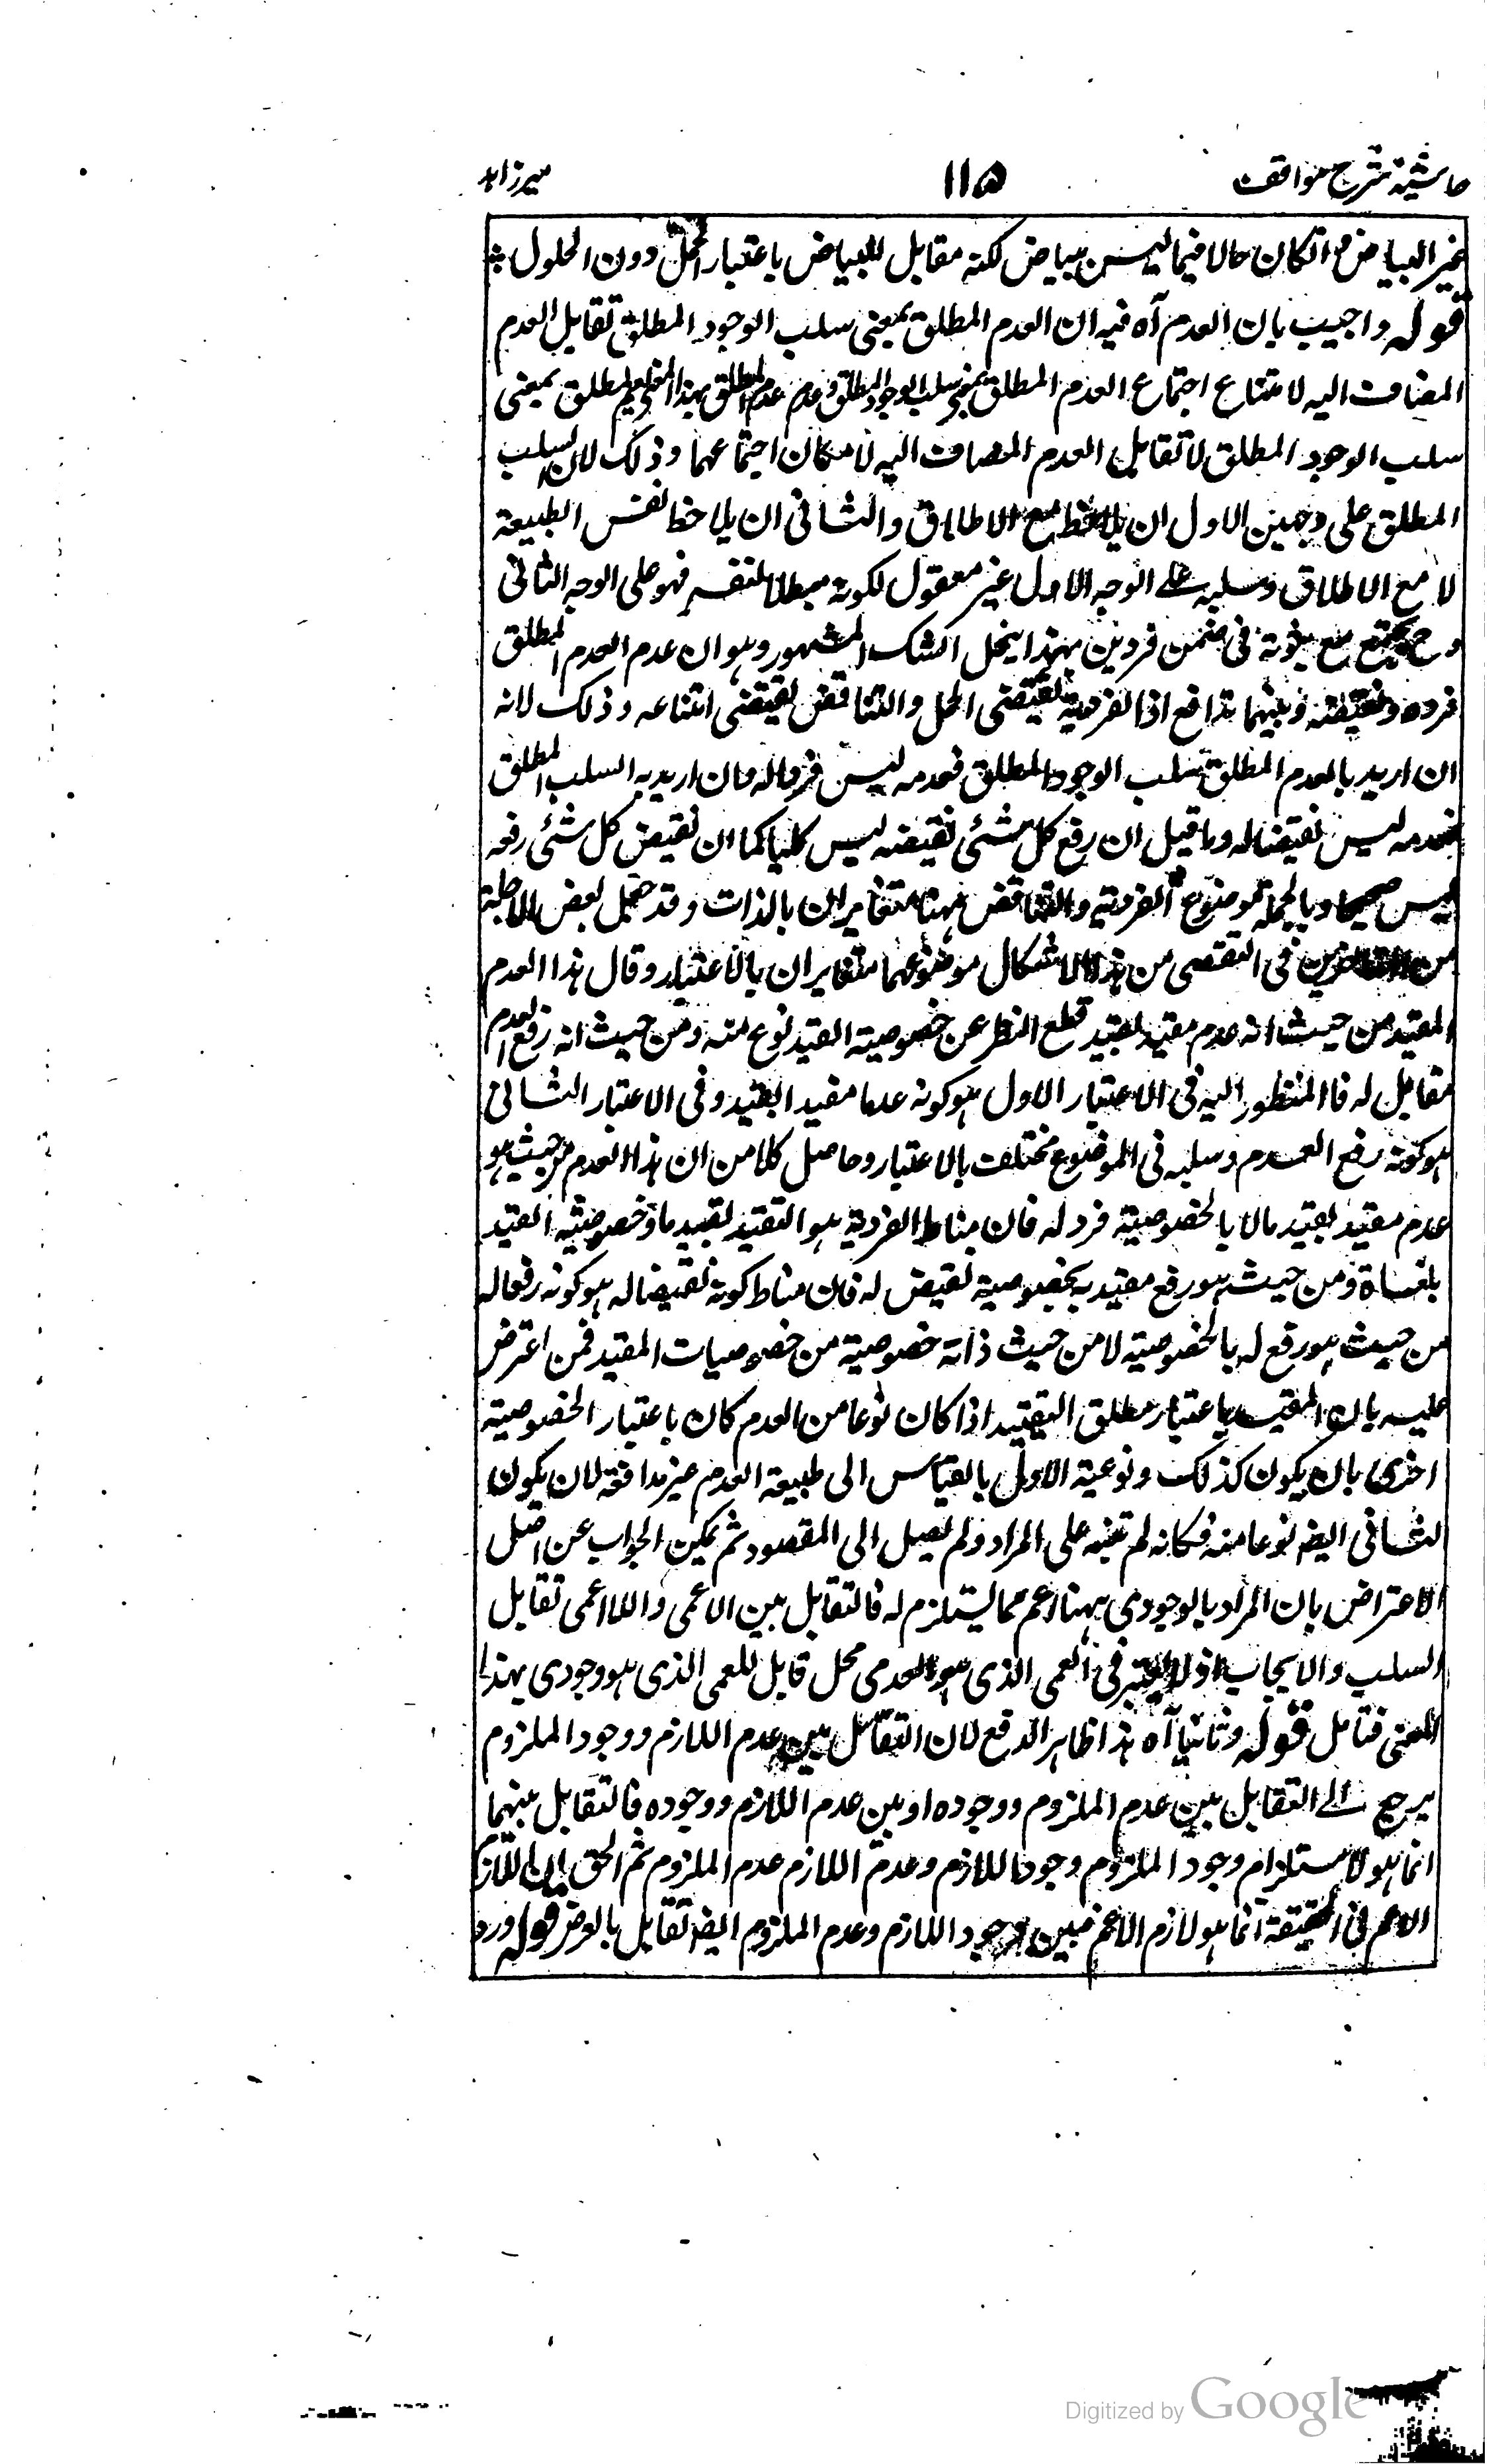 حاشیة شرح مواقف ۱۱۵ میرزاہد
غیر البیاض و انکان حالا فیما لیس ببیاض لکنه مقابل للبیاض باعتبار الحمل دون الحلول
قوله واجیب بان العدم آه فیه ان العدم المطلق بمعنی سلب الوجود المطلق تقابل العدم
المضاف الیه لامتناع اجتماع العدم المطلق بمعنی سلب الوجود المطلق و عدم العدم المطلق بهذا المعنی المطلق بمعنی
سلب الوجود المطلق لا تقابل العدم المضاف الیه لامکان اجتماعهما وذلک لان السلب
المطلق علی وجهین الاول ان یلاحظ مع الاطلاق والثانی ان یلاحظ نفس الطبیعة
لا مع الاطلاق وسلبه علی الوجه الاول غیر معقول لکونه مبطلا لنفسه فهو علی الوجه الثانی
وح یجتمع مع ثبوته فی ضمن فردین بهذا ینحل الشک المشهور وهو ان عدم العدم المطلق
فرده ونقیضه وبینهما تدافع اذ الفردیة تقتضی الحمل والتناقض یقتضی امتناعه وذلک لانه
ان ارید بالعدم المطلق سلب الوجود المطلق فعدمه لیس فردا له وان ارید به السلب المطلق
فعدمه لیس نقیضا له وما قیل ان رفع کل شئی نقیضه لیس کلیا کما ان نقیض کل شئی رفعه
لیس صحیحا وبالجملة موضوع الفردیة والتناقض ههنا متغایران بالذات وقد جعل بعض الاجلة
من المتاخرین فی التفصی من هذا الاشکال موضوعهما متغایران بالاعتبار وقال هذا العدم
المقید من حیث انه عدم مقید بقید قطع النظر عن خصوصیة القید نوع منه ومن حیث انه رفع العدم
مقابل له فالمنظور الیه فی الاعتبار الاول هو کونه عدما مقیدا بقید وفی الاعتبار الثانی
هو کونه رفع العدم وسلبه فی الموضوع مختلف بالاعتبار وحاصل کلامه ان هذا العدم من حیث هو
عدم مقید بقید ما لا بالخصوصیة فرد له فان مناط الفردیة هو التقید بقید ما وخصوصیة القید
ملغاة ومن حیث هو رفع مقید بخصوصیة نقیض له فان مناط کونه نقیضا له هو کونه رفعا له
من حیث هو رفع له بالخصوصیة لا من حیث ذاته خصوصیة من خصوصیات المقید فمن اعترض
علیه بان المقید باعتبار مطلق التقیید اذا کان نوعا من العدم کان باعتبار الخصوصیة
احری بان یکون کذلک ونوعیة الاول بالقیاس الی طبیعة العدم غیر مدافعة لان یکون
الثانی ایضا نوعا منه فکانه لم یتنبه علی المراد ولم یصل الی المقصود ثم یمکن الجواب عن اصل
الاعتراض بان المراد بالوجودی ههنا اعم مما یستلزم له فالتقابل بین الاعمی واللااعمی تقابل
السلب والایجاب اذ لا یعتبر فی العمی الذی هو العدمی محل قابل للعمی الذی هو وجودی بهذا
المعنی فتامل قوله وثانیا آه هذا ظاهر الدفع لان التقابل بین عدم اللازم ووجود الملزوم
یرجع الی التقابل بین عدم الملزوم ووجوده او بین عدم اللازم ووجوده فالتقابل بینهما
انما هو لاستلزام وجود الملزوم وجود اللازم وعدم اللازم عدم الملزوم ثم الحق ان اللازم
الاعم فی الحقیقة انما هو لازم الاعم فبین وجود اللازم وعدم الملزوم ایضا تقابل بالعرض قوله ورد
Digitized by Google